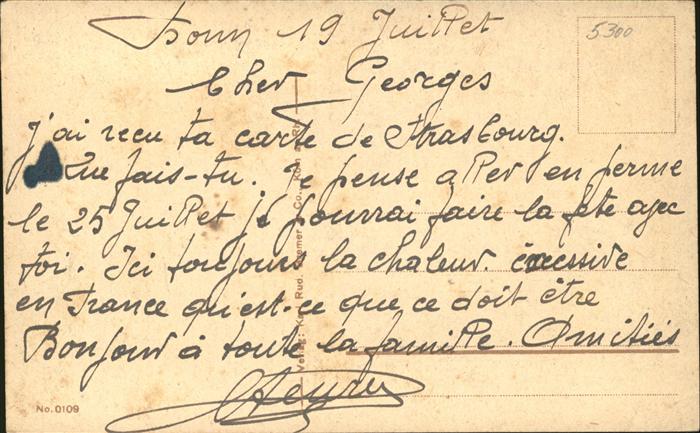 Bonn 19 Juillet
5300
Cher Georges
J'ai recu ta carte de Strasbourg.
Que fais-tu. Je pense aller en perme
le 25 Juillet je pourrai faire la fête avec
toi. Ici toujours la chaleur excessive
en France qu'est-ce que ce doit être
Bonjour à toute la famille. Amitiés
Henri
Verlag: Rud. Kremer Co.
No. 0109